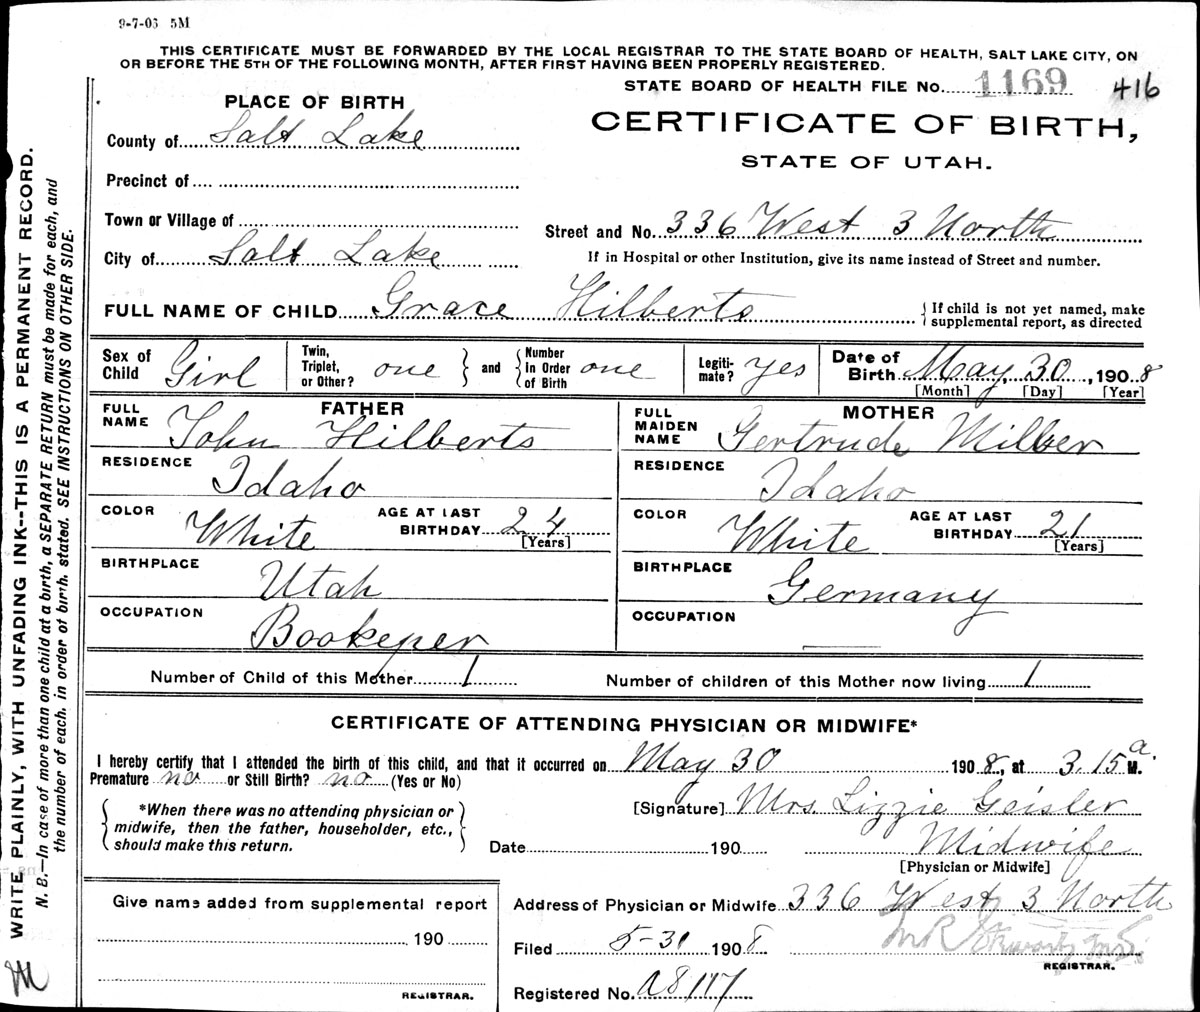 9-7-06 5M
THIS CERTIFICATE MUST BE FORWARDED BY THE LOCAL REGISTRAR TO THE STATE BOARD OF HEALTH, SALT LAKE CITY, ON
OR BEFORE THE 5TH OF THE FOLLOWING MONTH, AFTER FIRST HAVING BEEN PROPERLY REGISTERED.
STATE BOARD OF HEALTH FILE No. 1169 416
PLACE OF BIRTH
CERTIFICATE OF BIRTH,
STATE OF UTAH.
County of Salt Lake
Precinct of
Town or Village of
Street and No. 336 West 3 North
City of Salt Lake
If in Hospital or other Institution, give its name instead of Street and number.
FULL NAME OF CHILD Grace Hilberts
{ If child is not yet named, make
supplemental report, as directed
Sex of Child Girl
Twin, Triplet, or Other? one } and { Number In Order of Birth one
Legiti-mate? yes
Date of Birth May 30, 1908
[Month] [Day] [Year]
FATHER
FULL NAME John Hilberts
RESIDENCE Idaho
COLOR White AGE AT LAST BIRTHDAY 24
[Years]
BIRTHPLACE Utah
OCCUPATION Bookeper
MOTHER
FULL MAIDEN NAME Gertrude Milber
RESIDENCE Idaho
COLOR White AGE AT LAST BIRTHDAY 21
[Years]
BIRTHPLACE Germany
OCCUPATION
Number of Child of this Mother 1 Number of children of this Mother now living 1
CERTIFICATE OF ATTENDING PHYSICIAN OR MIDWIFE*
I hereby certify that I attended the birth of this child, and that it occurred on May 30 1908, at 3.15 a M.
Premature no or Still Birth? no (Yes or No)
{ *When there was no attending physician or
midwife, then the father, householder, etc.,
should make this return. }
[Signature] Mrs. Lizzie Geisler
Date 190 Midwife
[Physician or Midwife]
Give name added from supplemental report
190
REGISTRAR.
Address of Physician or Midwife 336 West 3 North
Filed 5-31 1908
REGISTRAR.
Registered No. a8117
WRITE PLAINLY, WITH UNFADING INK--THIS IS A PERMANENT RECORD.
N. B.—In case of more than one child at a birth, a SEPARATE RETURN must be made for each, and
the number of each, in order of birth, stated. SEE INSTRUCTIONS ON OTHER SIDE.